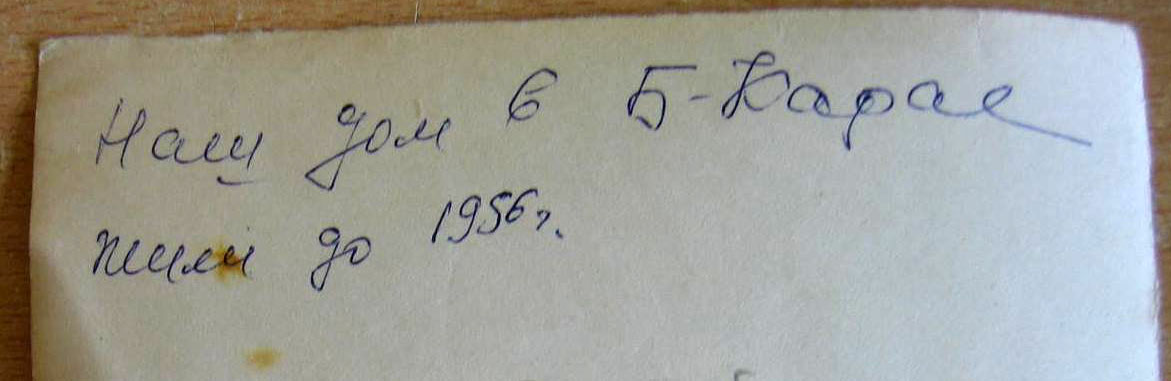 Наш дом в Б-Карае
жили до 1956 г.